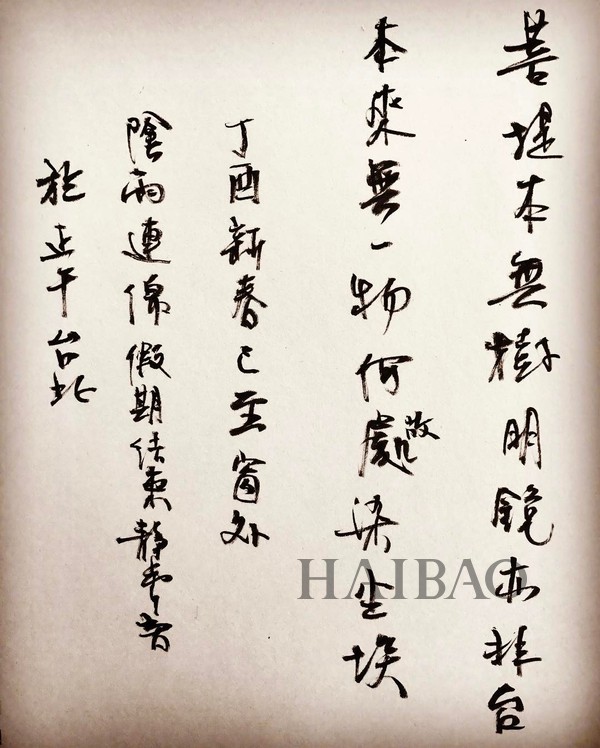 菩堤本無樹明鏡亦非台
本來無一物何處故染尘埃
丁酉新春已至窗外
陰雨連綿假期结束静
於正午台北
HAIBAO